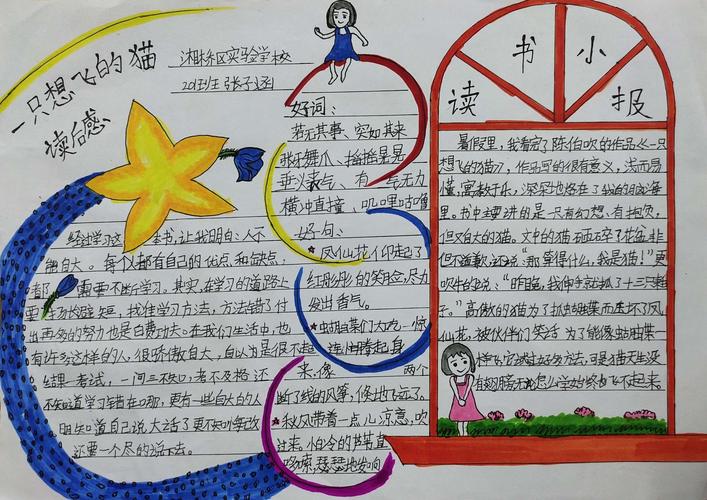 一只想飞的猫
读后感
湘东区实验学校
201班 张子涵
经过学习这本书,让我明白:人不
能自大。每个人都有自己的优点和缺点,
都需要不断学习。其实,在学习的道路上
要
短,找准学习方法,方法错了付
出再多的努力也是白费功夫。在我们生活中,也
有许多这样的人,很骄傲自大,自以为是很不起
结果一考试,一问三不知,考不及格还
不知道学习错在哪,更有一些自大的人
明知道自己说大话了更不知悔改
还要一个尽的说下去。
好词:
若无其事、突如其来
张牙舞爪、摇摇晃晃
垂头丧气、有气无力
横冲直撞、叽哩咕噜
好句:
凤仙花仰起了
红彤彤的笑脸,尽力
发出香气。
蝴蝶们大吃一惊
连忙腾起身
来,像两个
断了线的风筝,倏地飞远了。
秋风带着一点儿凉意,吹
过来。怕冷的芦苇直
哆嗦,瑟瑟地发响
读书小报
暑假里,我看完了陈伯吹的作品《一只
想飞的猫》,作品写的很有意义,浅而易
懂,寓教于乐,深深地烙在了我的脑海
里。书中主要讲的是一只有幻想、有抱负,
但又自大的猫。文中的猫砸碎了花盆非
但不道歉,还说“那算得什么,我是猫!”更
吹牛的说:“昨晚,我伸手就抓了十三只耗
子。”高傲的猫为了抓蝴蝶而压坏了凤
仙花,被伙伴们笑话,为了能像蝴蝶一
样飞,它试过好多方法,可是猫天生没
有翅膀,无论怎么学始终飞不起来。